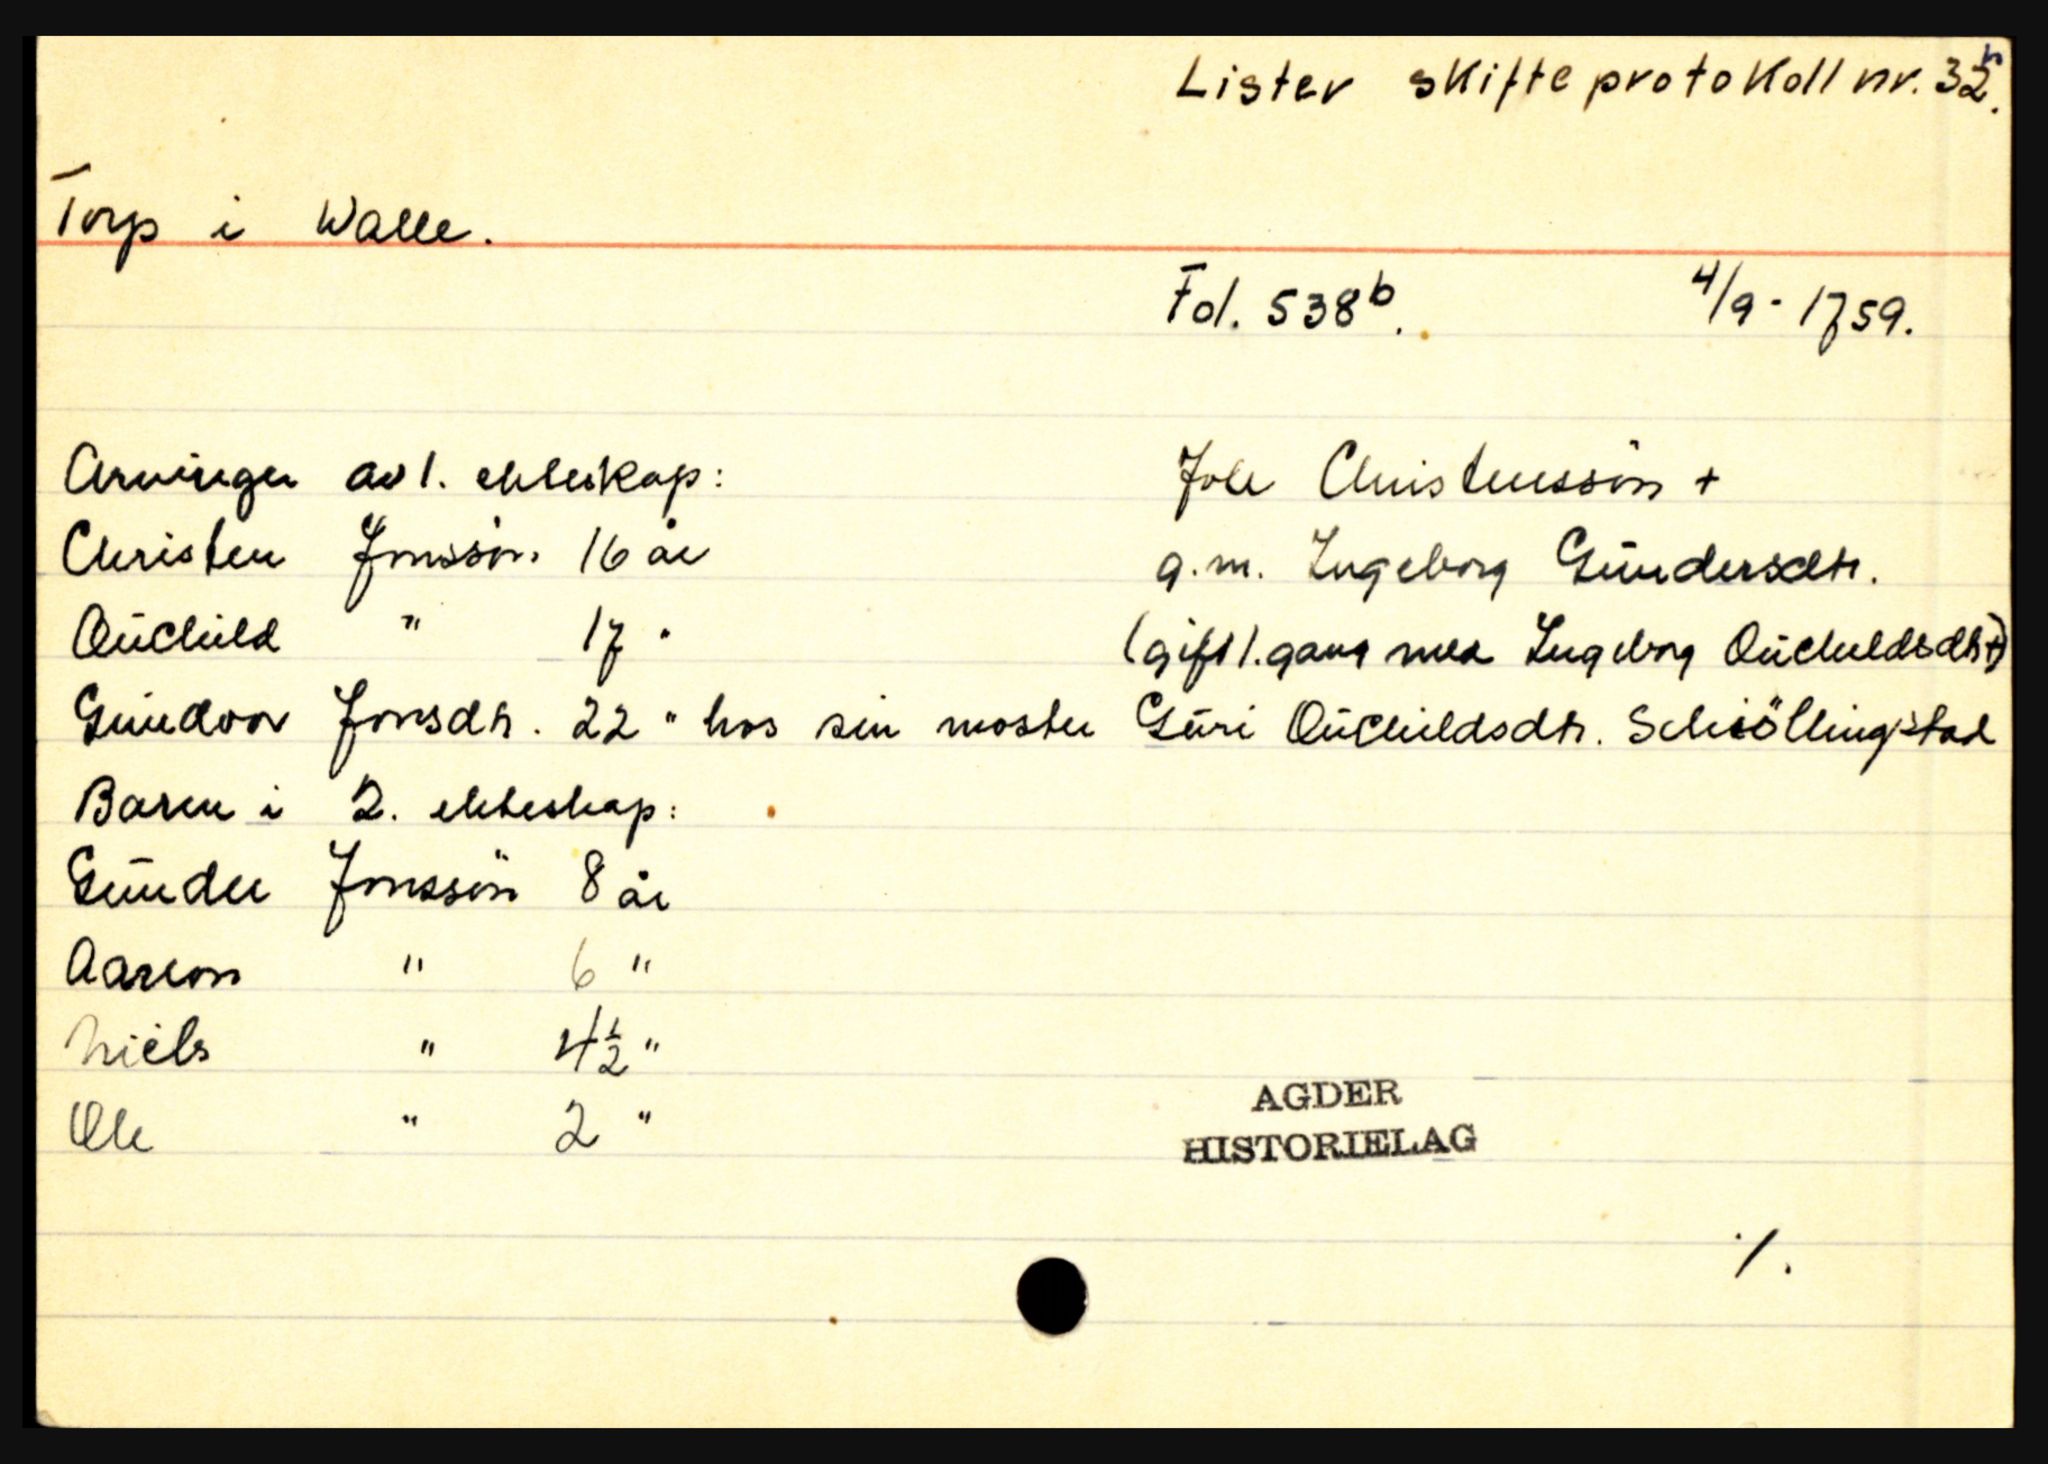 Lister skifteprotokoll nr. 32b.
Torp i Walle.
Fol. 538b. 4/9 - 1759.
Arvinger av 1. ekteskap:
Johe Christenssøn +
Christen Jonssøn. 16 år
g.m. Ingeborg Gundersdtr.
Auchild " 17 "
(gift 1. gang med Ingeborg Auchildsdtr +)
Gundvor Jonsdtr. 22 " hos sin moster Guri Auchildsdtr. Schiöllingstad
Baren i 2. ekteskap:
Gunder Jonssøn 8 år
Aareon " 6 "
Niels " 4½ "
Ole " 2 "
AGDER
HISTORIELAG
./.